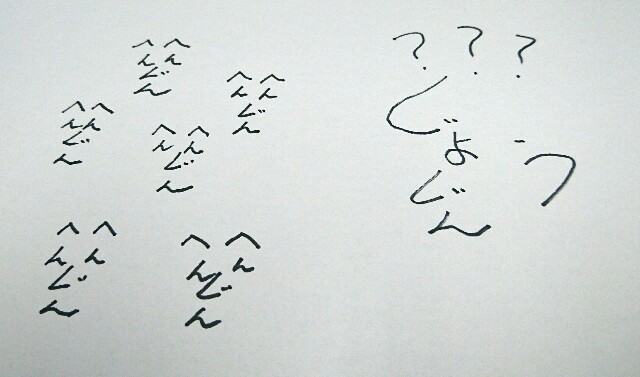 へへ
んん
じ
ん
へへ
んん
じ
ん
へへ
んん
じ
ん
へへ
んん
じ
ん
へへ
んん
じ
ん
へへ
んん
じ
ん
???
じょう
じん